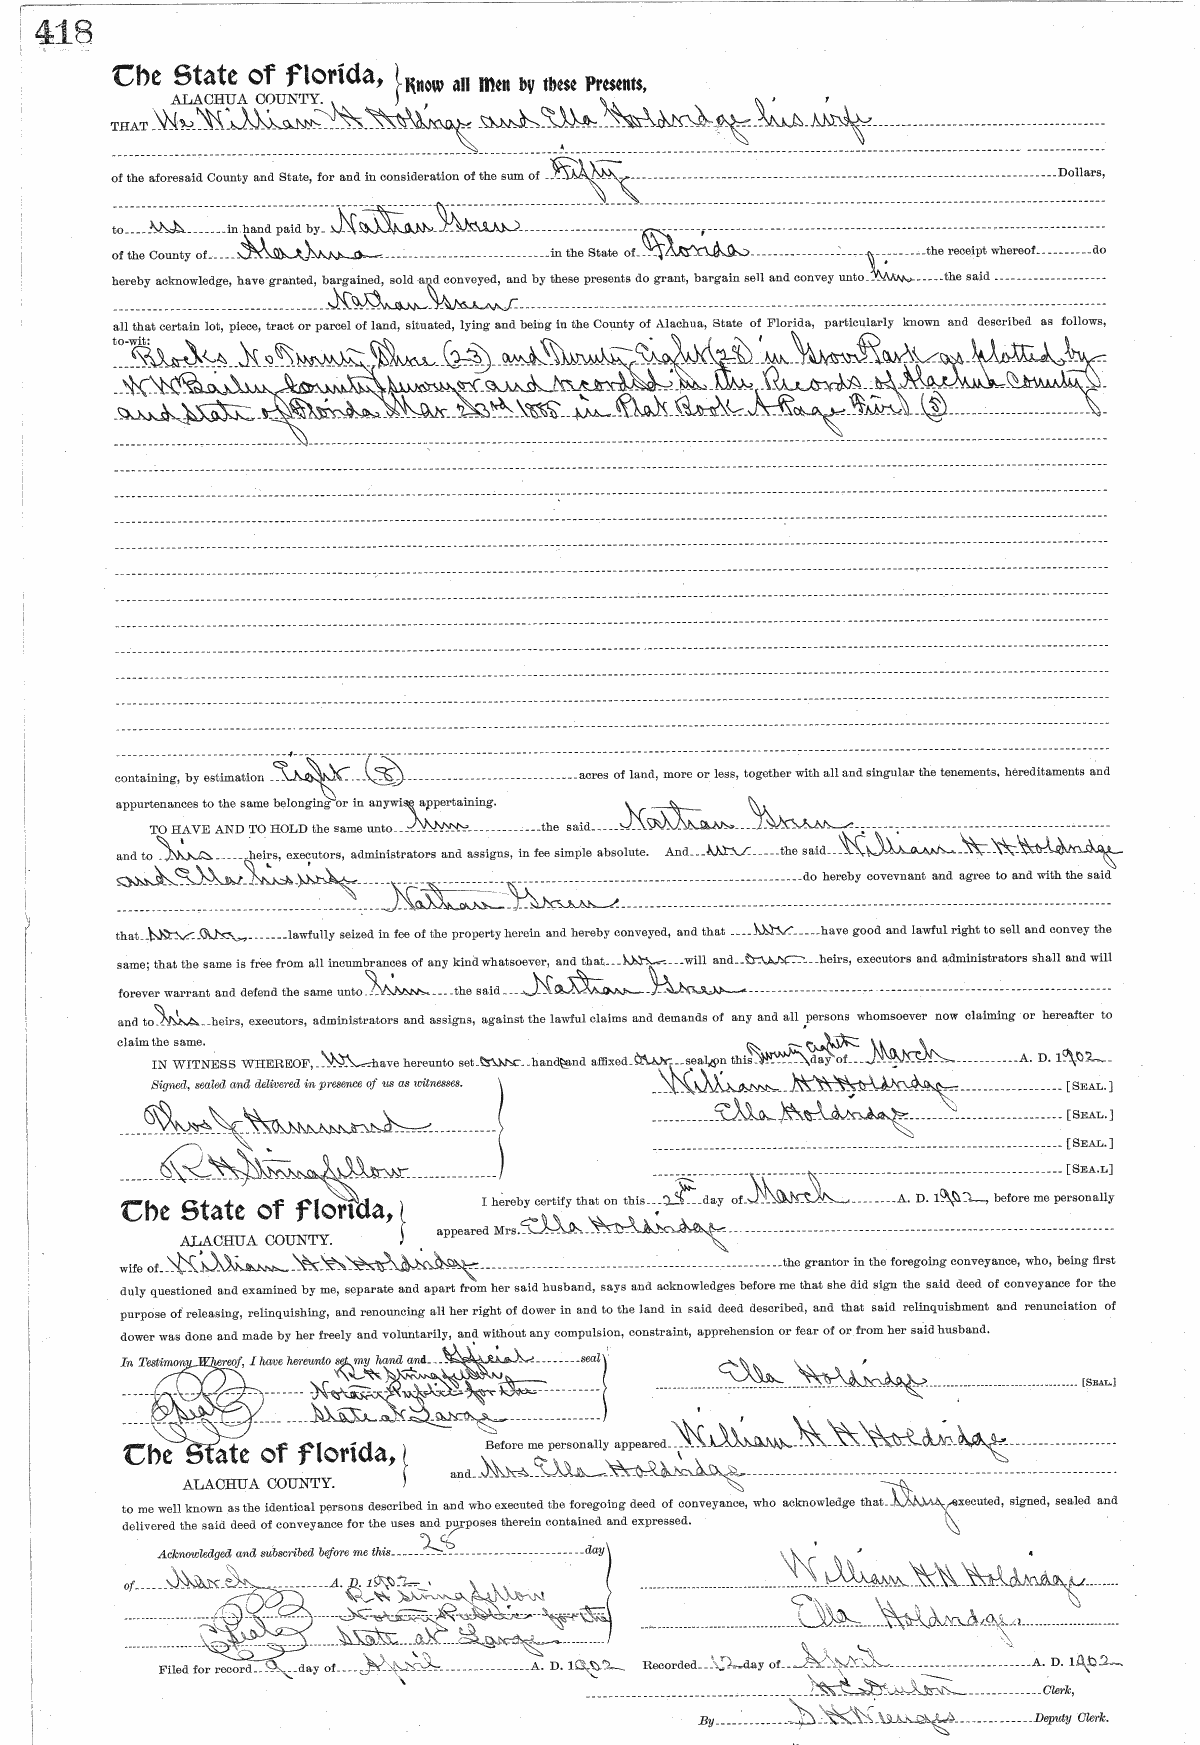 418
The State of Florida, Know all Men by these Presents,
ALACHUA COUNTY.
THAT We William H Holdrige and Ella Holdridge his wife
of the aforesaid County and State, for and in consideration of the sum of Fifty Dollars,
to us in hand paid by Nathan Green
of the County of Alachua in the State of Florida the receipt whereof do
hereby acknowledge, have granted, bargained, sold and conveyed, and by these presents do grant, bargain sell and convey unto him the said
Nathan Green
all that certain lot, piece, tract or parcel of land, situated, lying and being in the County of Alachua, State of Florida, particularly known and described as follows,
to-wit:
Blocks No Twenty Three (23) and Twenty Eight (28) in Grove Park as plotted by
County Surveyor and recorded in the Records of Alachua County
and State of Florida Mar 23rd 1885 in Plat Book A Page Five (5)
containing, by estimation Eight (8) acres of land, more or less, together with all and singular the tenements, hereditaments and
appurtenances to the same belonging or in anywise appertaining.
TO HAVE AND TO HOLD the same unto him the said Nathan Green
and to his heirs, executors, administrators and assigns, in fee simple absolute. And we the said William H H Holdridge
and Ella his wife do hereby covevnant and agree to and with the said
Nathan Green
that we are lawfully seized in fee of the property herein and hereby conveyed, and that we have good and lawful right to sell and convey the
same; that the same is free from all incumbrances of any kind whatsoever, and that we will and our heirs, executors and administrators shall and will
forever warrant and defend the same unto him the said Nathan Green
and to his heirs, executors, administrators and assigns, against the lawful claims and demands of any and all persons whomsoever now claiming or hereafter to
claim the same.
IN WITNESS WHEREOF, We have hereunto set our hand and affixed our seal on this Twenty Eighth day of March A. D. 1902
Signed, sealed and delivered in presence of us as witnesses. William H H Holdridge [SEAL.]
Ella Holdridge [SEAL.]
Thos J Hammond [SEAL.]
R H Stringfellow [SEA.L]
The State of Florida, I hereby certify that on this 28th day of March A. D. 1902, before me personally
ALACHUA COUNTY. appeared Mrs. Ella Holdridge
wife of William H H Holdridge the grantor in the foregoing conveyance, who, being first
duly questioned and examined by me, separate and apart from her said husband, says and acknowledges before me that she did sign the said deed of conveyance for the
purpose of releasing, relinquishing, and renouncing all her right of dower in and to the land in said deed described, and that said relinquishment and renunciation of
dower was done and made by her freely and voluntarily, and without any compulsion, constraint, apprehension or fear of or from her said husband.
In Testimony Whereof, I have hereunto set my hand and official seal
R H Stringfellow
Ella Holdridge [SEAL.]
Notary Public for the
Seal State at Large
The State of Florida, Before me personally appeared William H H Holdridge
ALACHUA COUNTY. and Mrs Ella Holdridge
to me well known as the identical persons described in and who executed the foregoing deed of conveyance, who acknowledge that they executed, signed, sealed and
delivered the said deed of conveyance for the uses and purposes therein contained and expressed.
Acknowledged and subscribed before me this 28 day
of March A. D. 1902. William H H Holdridge
R H Stringfellow
Notary Public for the Ella Holdridge
Seal State at Large
Filed for record 9 day of April A. D. 1902 Recorded 12 day of April A. D. 1902
Clerk,
By Deputy Clerk.